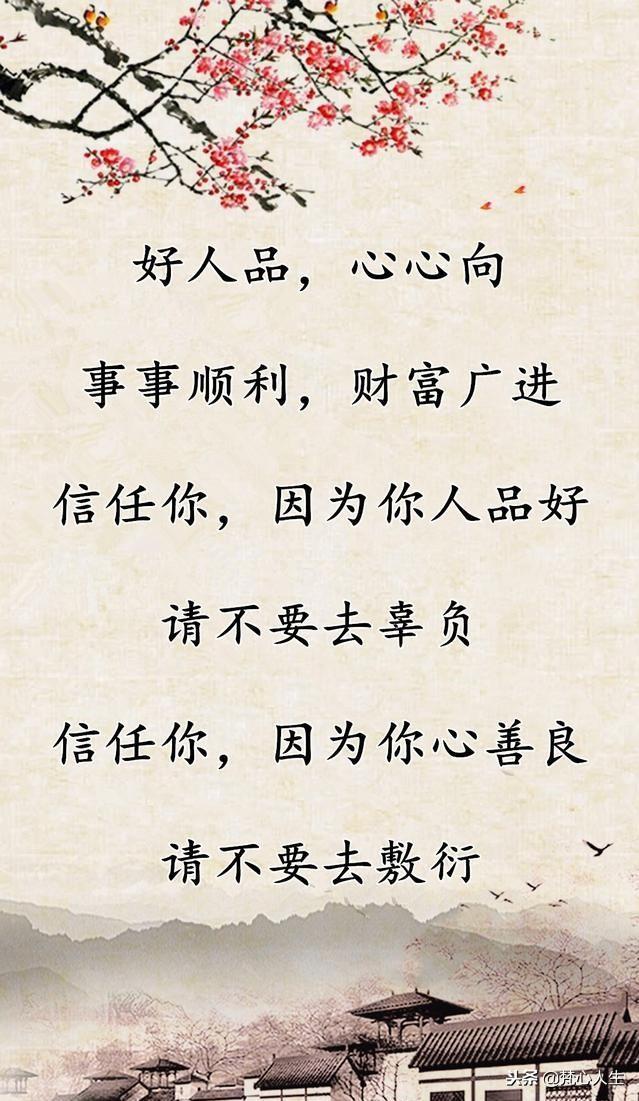 好人品，心心向
事事顺利，财富广进
信任你，因为你人品好
请不要去辜负
信任你，因为你心善良
请不要去敷衍
头条 @梵心人生